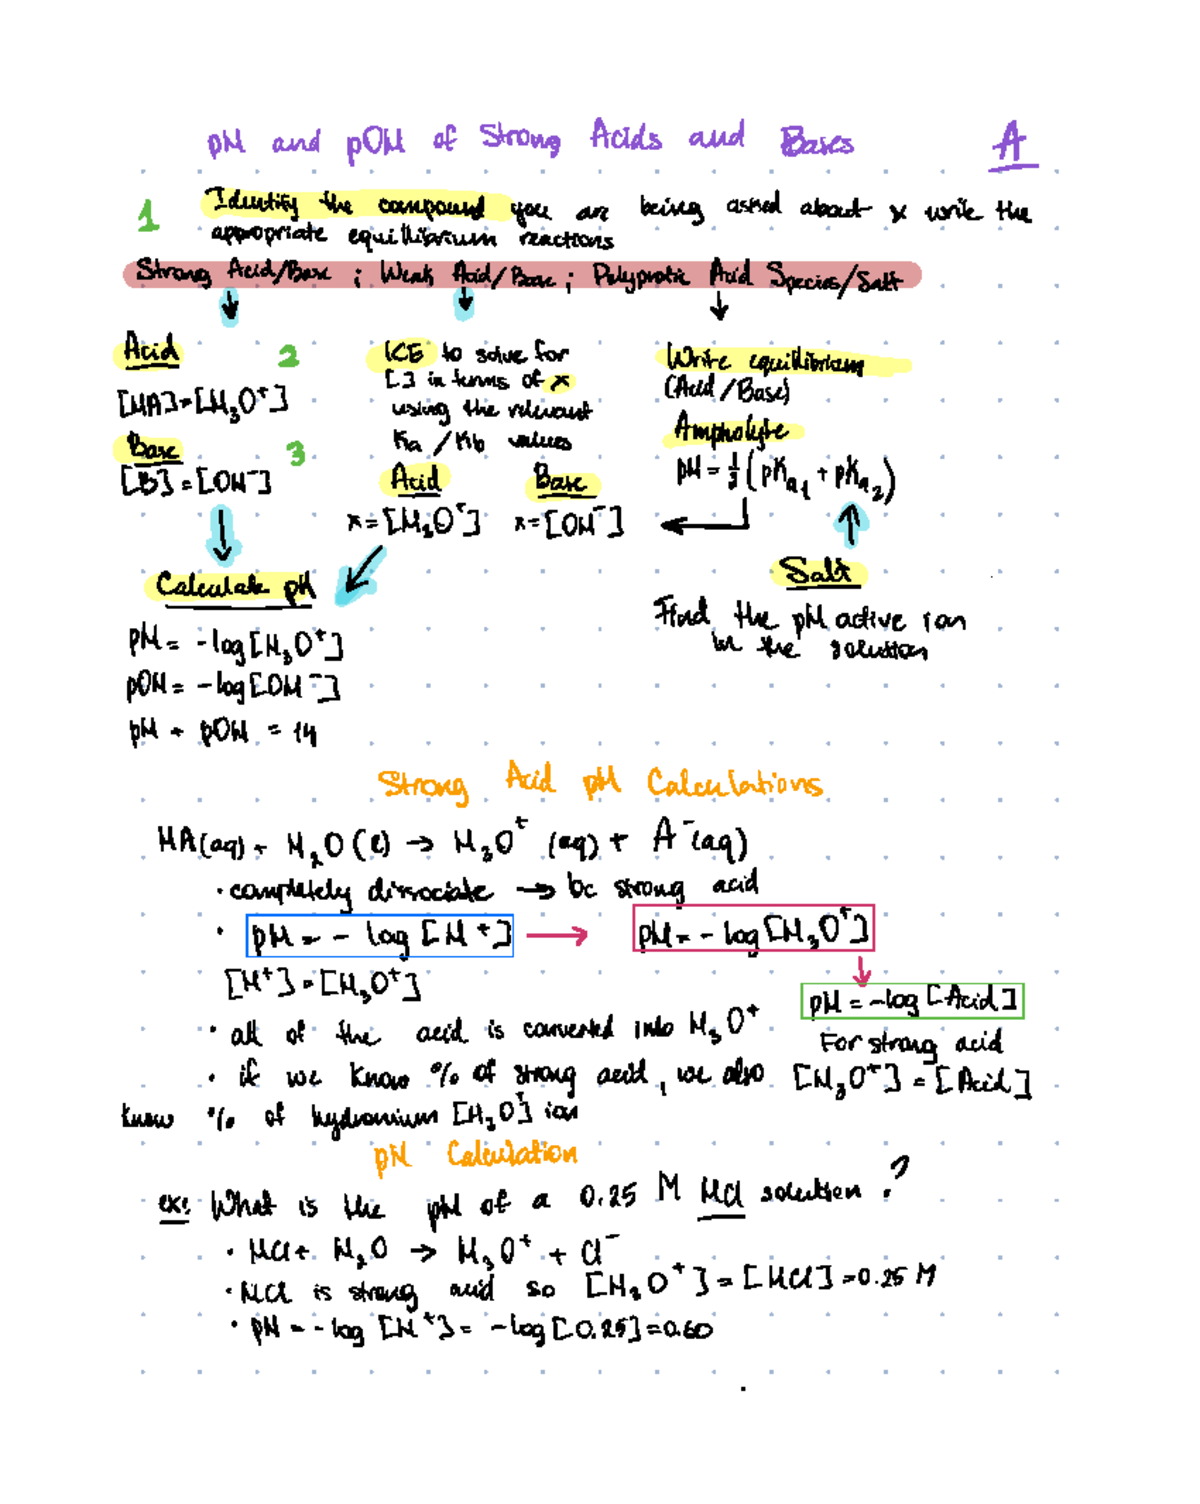 pH and pOH of Strong Acids and Bases A
1 Identify the compound you are being asked about & write the
appropriate equillibrium reactions
Strong Acid/Base ; Weak Acid/Base ; Polyprotic Acid Species/Salt
Acid 2
[HA]=[H₃O⁺]
Base 3
[B]=[OH⁻]
ICE to solve for
[ ] in terms of x
using the relevant
Ka / Kb values
Acid Base
x=[H₃O⁺] x=[OH⁻]
Write equillibrium
(Acid/Base)
Ampholyte
pH = ½(pKa₁ + pKa₂)
Salt
Find the pH active ion
in the solution
Calculate pH
pH = -log[H₃O⁺]
pOH = -log[OH⁻]
pH + pOH = 14
Strong Acid pH Calculations
HA(aq) + H₂O(l) → H₃O⁺(aq) + A⁻(aq)
• completely dissociate → bc strong acid
• pH = - log [H⁺] → pH = - log [H₃O⁺]
[H⁺] = [H₃O⁺]
pH = -log [Acid]
• all of the acid is converted into H₃O⁺
For strong acid
• if we know % of strong acid, we also
[H₃O⁺] = [Acid]
know % of hydronium [H₃O⁺] ion
pH Calculation
ex: What is the pH of a 0.25 M HCl solution?
• HCl + H₂O → H₃O⁺ + Cl⁻
• HCl is strong acid so [H₃O⁺] = [HCl] = 0.25 M
• pH = - log [H⁺] = -log[0.25] = 0.60